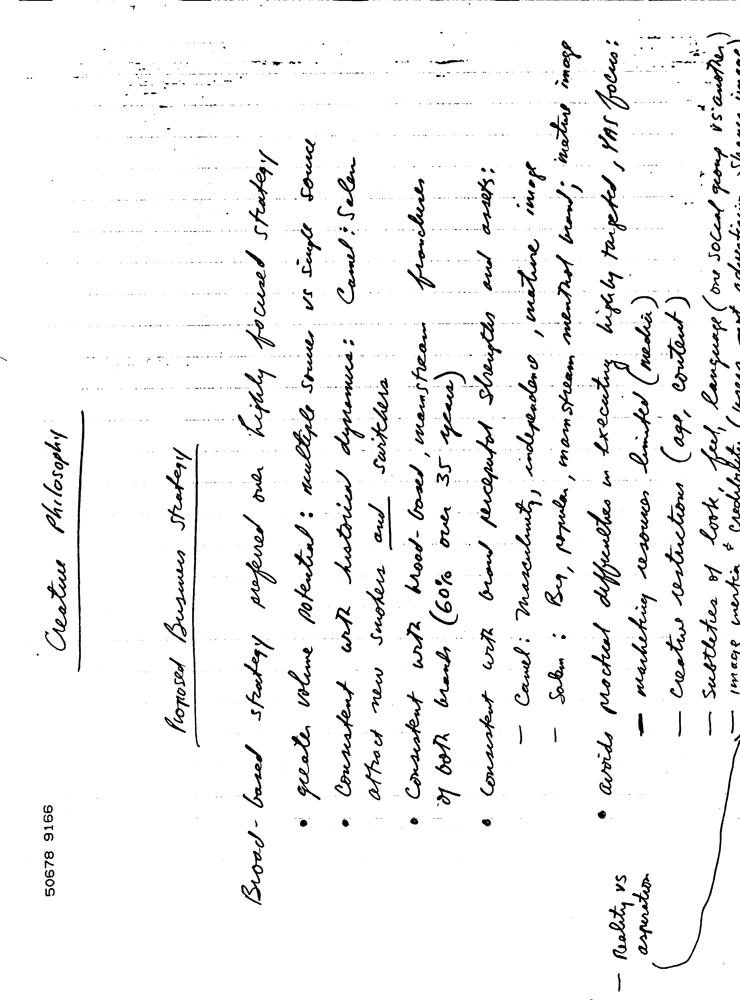 Creative Philosophy
Proposed Business Strategy
Broad-based strategy preferred over highly focused strategy
• greater volume potential: multiple sources vs single source
• Consistent with historical dynamics: Camel; Salem
attract new smokers and switchers
• Consistent with broad-based, mainstream franchises
of both brands (60% over 35 years)
• Consistent with brand perceptual strengths and assets:
— Camel: Masculinity, independence, mature image
— Salem: Big, popular, mainstream menthol brand; mature image
• avoids practical difficulties in executing highly targeted, YAS focus:
— marketing resources limited (media)
— Creative restrictions (age, content)
— Subtleties of look, feel, language (one social group vs another)
— image inertia & credibility (
— Reality vs
aspiration
50678 9166